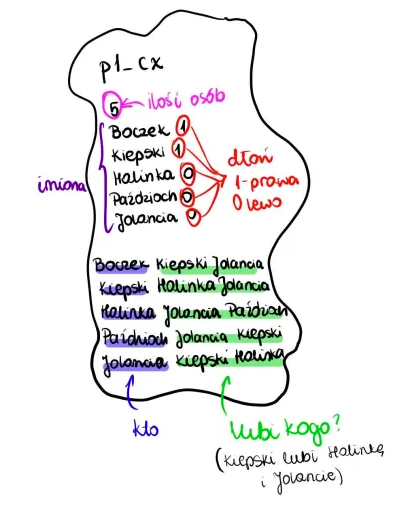 p1_cx
5 ← ilość osób
Boczek 1
Kiepski 1
Halinka 0
Paździoch 0
Jolancia 0
imiona
dłoń
1-prawa
0 lewo
Boczek Kiepski Jolancia
Kiepski Halinka Jolancia
Halinka Jolancia Paździoch
Paździoch Jolancia Kiepski
Jolancia Kiepski Halinka
kto
lubi kogo?
(Kiepski lubi Halinkę
i Jolancie)